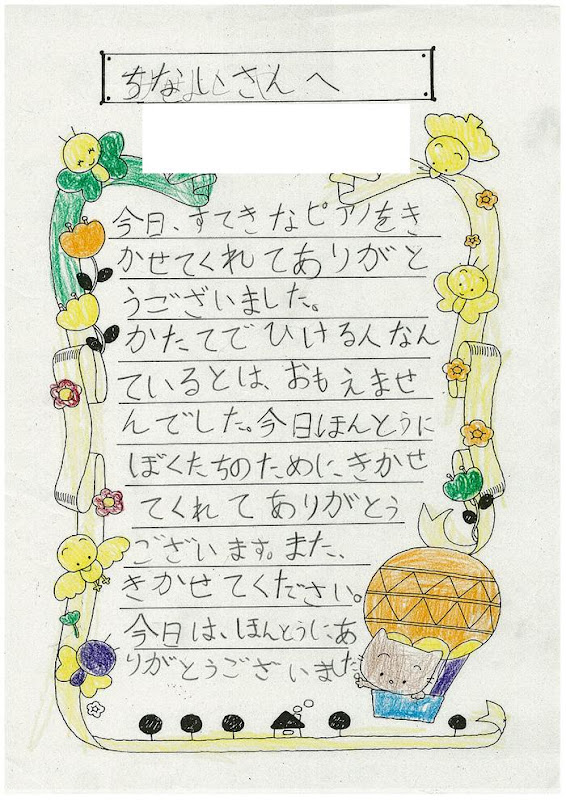 ちないさんへ
今日、すてきなピアノをき
かせてくれてありがと
うございました。
かたてでひける人なん
ているとは、おもえませ
んでした。今日ほんとうに
ぼくたちのために、きかせ
てくれてありがとう
ございます。また、
きかせてください。
今日は、ほんとうにあ
りがとうございました